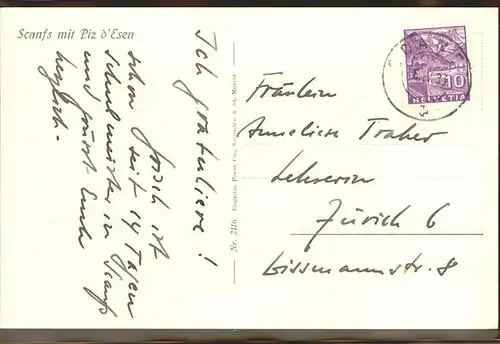 Scanfs mit Piz d'Esen
Ich gratuliere!
schon
ist
seit 14 Tagen
Schulmeister in Scanfs
und grüsst Euch
herzlich.
Nr. 2116 Engadin Press Co., Samaden & St. Moritz
10
HELVETIA
Fräulein
Anneliese
Lehrerin
Zürich 6